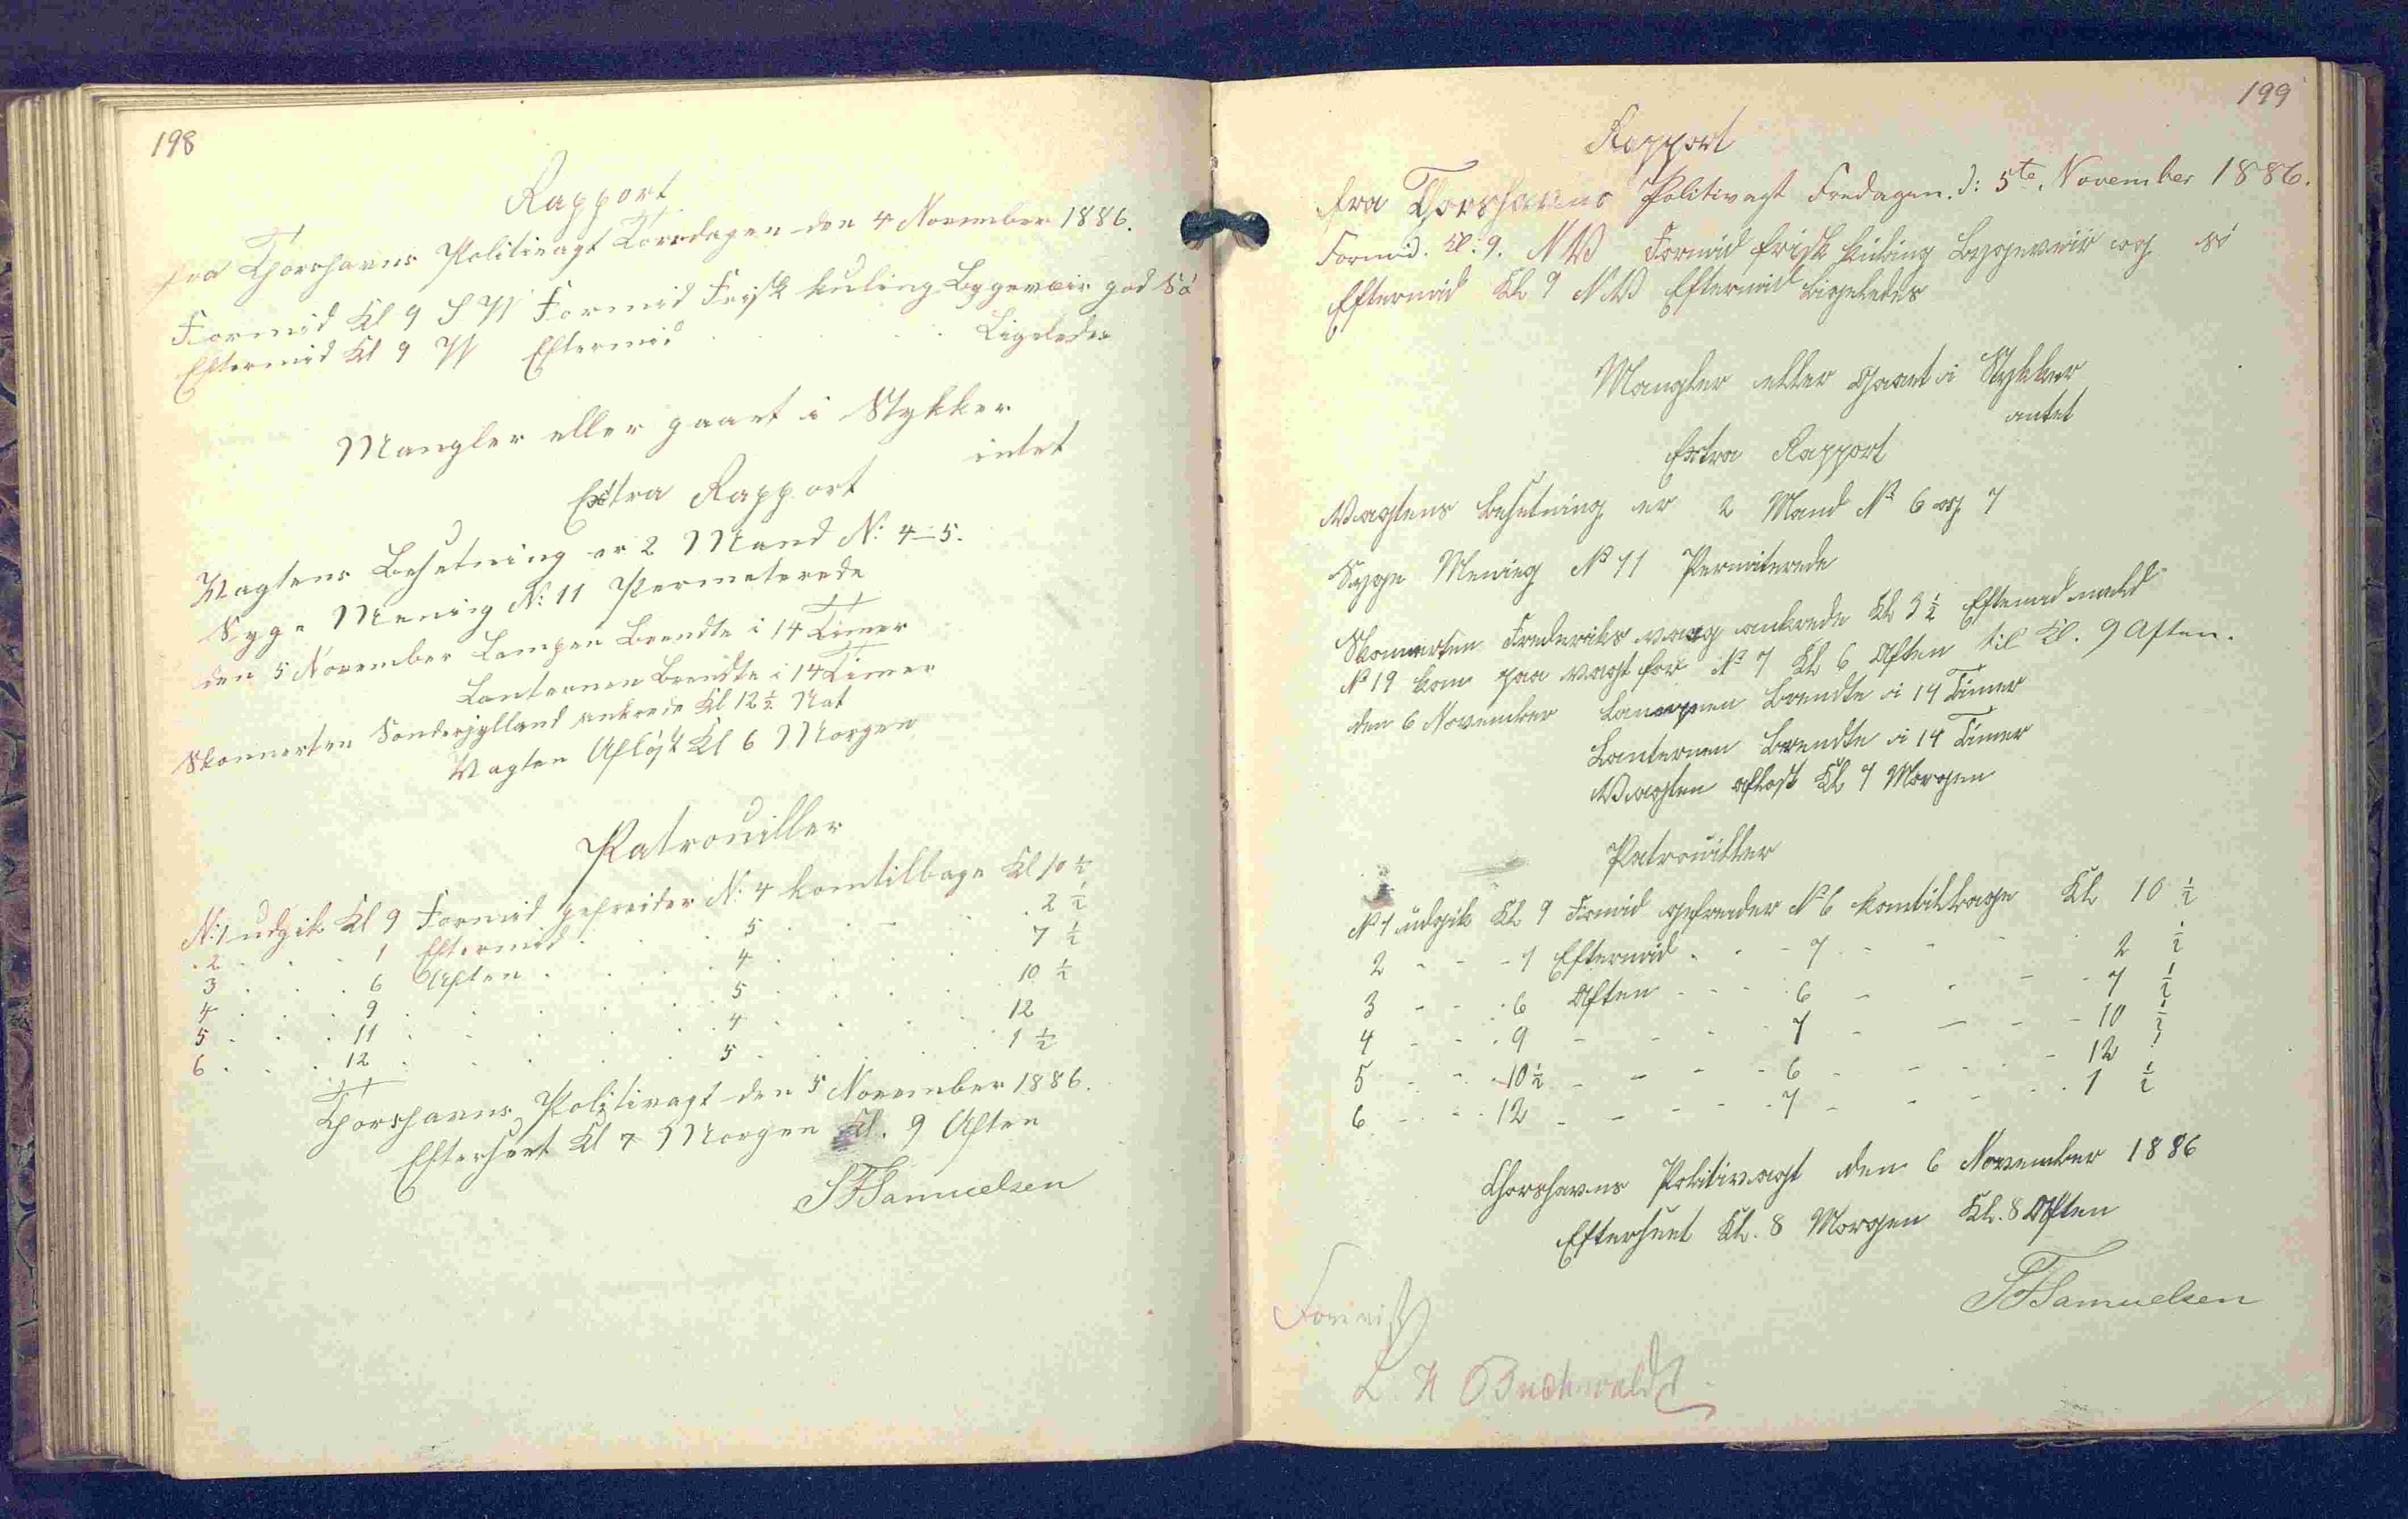 198
Rapport
fra Thorshavns Politivagt Torsdagen den 4 November 1886.
Formid Kl 9 S W Formid Frisk kuling Bygeveir god Sö
Eftermid Kl 9 W Eftermid . . . . Ligeledes
Mangler eller gaaet i Stykker
intet
Extra Rapport
Vagtens Besetning er 2 Mand N: 4–5.
Syge Menig N: 11 Permeterede
den 5 November Lampen Brendte i 14 Timer
Lanternen Brendte i 14 Timer
Skonnerten Sönderjylland ankrede Kl 12 1/2 Nat
Vagten Aflöst Kl 6 Morgen
Patrouiller
N: 1 udgik Kl 9 Formid gefreider N: 4 kom tilbage Kl 10 1/2
2 . . . 1 Eftermid . . . 5 . . . . 2 1/2
3 . . . 6 Aften . . . . 4 . . . . 7 1/2
4 . . . 9 . . . . . . 5 . . . . 10 1/2
5 . . . 11 . . . . . . 4 . . . . 12
6 . . . 12 . . . . . . 5 . . . . 1 1/2
Thorshavns Politivagt den 5 November 1886.
Efterseet Kl 7 Morgen Kl. 9 Aften
SFSamuelsen
199
Rapport
fra Thorshavns Politivagt Fredagen. d: 5te. November 1886.
Formid. Kl: 9. NW Formid frisk kuling Byggeveir og sö
Eftermid Kl 9 NW Eftermid Ligeledes
Mangler eller gaaet i Stykker
intet
Extra Rapport
Vagtens Besetning er 2 Mand No 6 og 7
Syge Menig No 11 Permiterede
Skonnerten Frederiksvaag ankrede Kl 3 1/2 Eftermid
No 19 kom paa vagt for No 7 Kl 6 Aften til Kl. 9 Aften.
den 6 November Lampen Brendte i 14 Timer
Lanternen Brendte i 14 Timer
Vagten aflost Kl 7 Morgen
Patrouiller
No 1 udgik Kl 9 Formid gefreider No 6 kom tilbage Kl 10 1/2
2 - - - 1 Eftermid . - - 7 - - - 2 1/2
3 - - - 6 Aften - - - 6 - - - 7 1/2
4 - - - 9 - - - - 7 - - - 10 1/2
5 - - - 10 1/2 - - - - 6 - - - 12
6 - - - 12 - - - - 7 - - - 1 1/2
Thorshavns Politivagt den 6 November 1886
Efterseet Kl. 8 Morgen Kl. 8 Aften
SFSamuelsen
L. H Buchwaldt